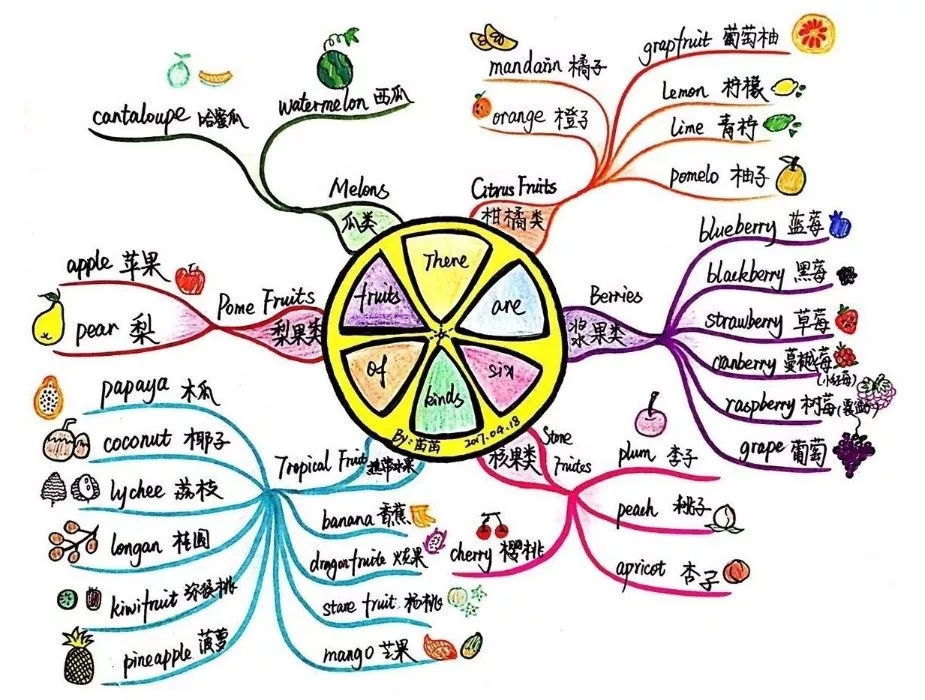 There
are
six
kinds
of
fruits
By:苗苗 2017.04.18
Melons
瓜类
cantaloupe 哈蜜瓜
watermelon 西瓜
Citrus Fruits
柑橘类
mandarin 橘子
orange 橙子
grapfruit 葡萄柚
Lemon 柠檬
lime 青柠
pomelo 柚子
Berries
浆果类
blueberry 蓝莓
blackberry 黑莓
strawberry 草莓
canberry 蔓越莓
(小红莓)
raspberry 树莓
grape 葡萄
Stone
核果类
Fruites
plum 李子
peach 桃子
apricot 杏子
cherry 樱桃
Tropical Fruit 热带水果
papaya 木瓜
coconut 椰子
lychee 荔枝
longan 桂圆
kiwifruit 弥猴桃
pineapple 菠萝
banana 香蕉
dragonfruite 火龙果
stare fruit 杨桃
mango 芒果
Pome Fruits
梨果类
apple 苹果
pear 梨